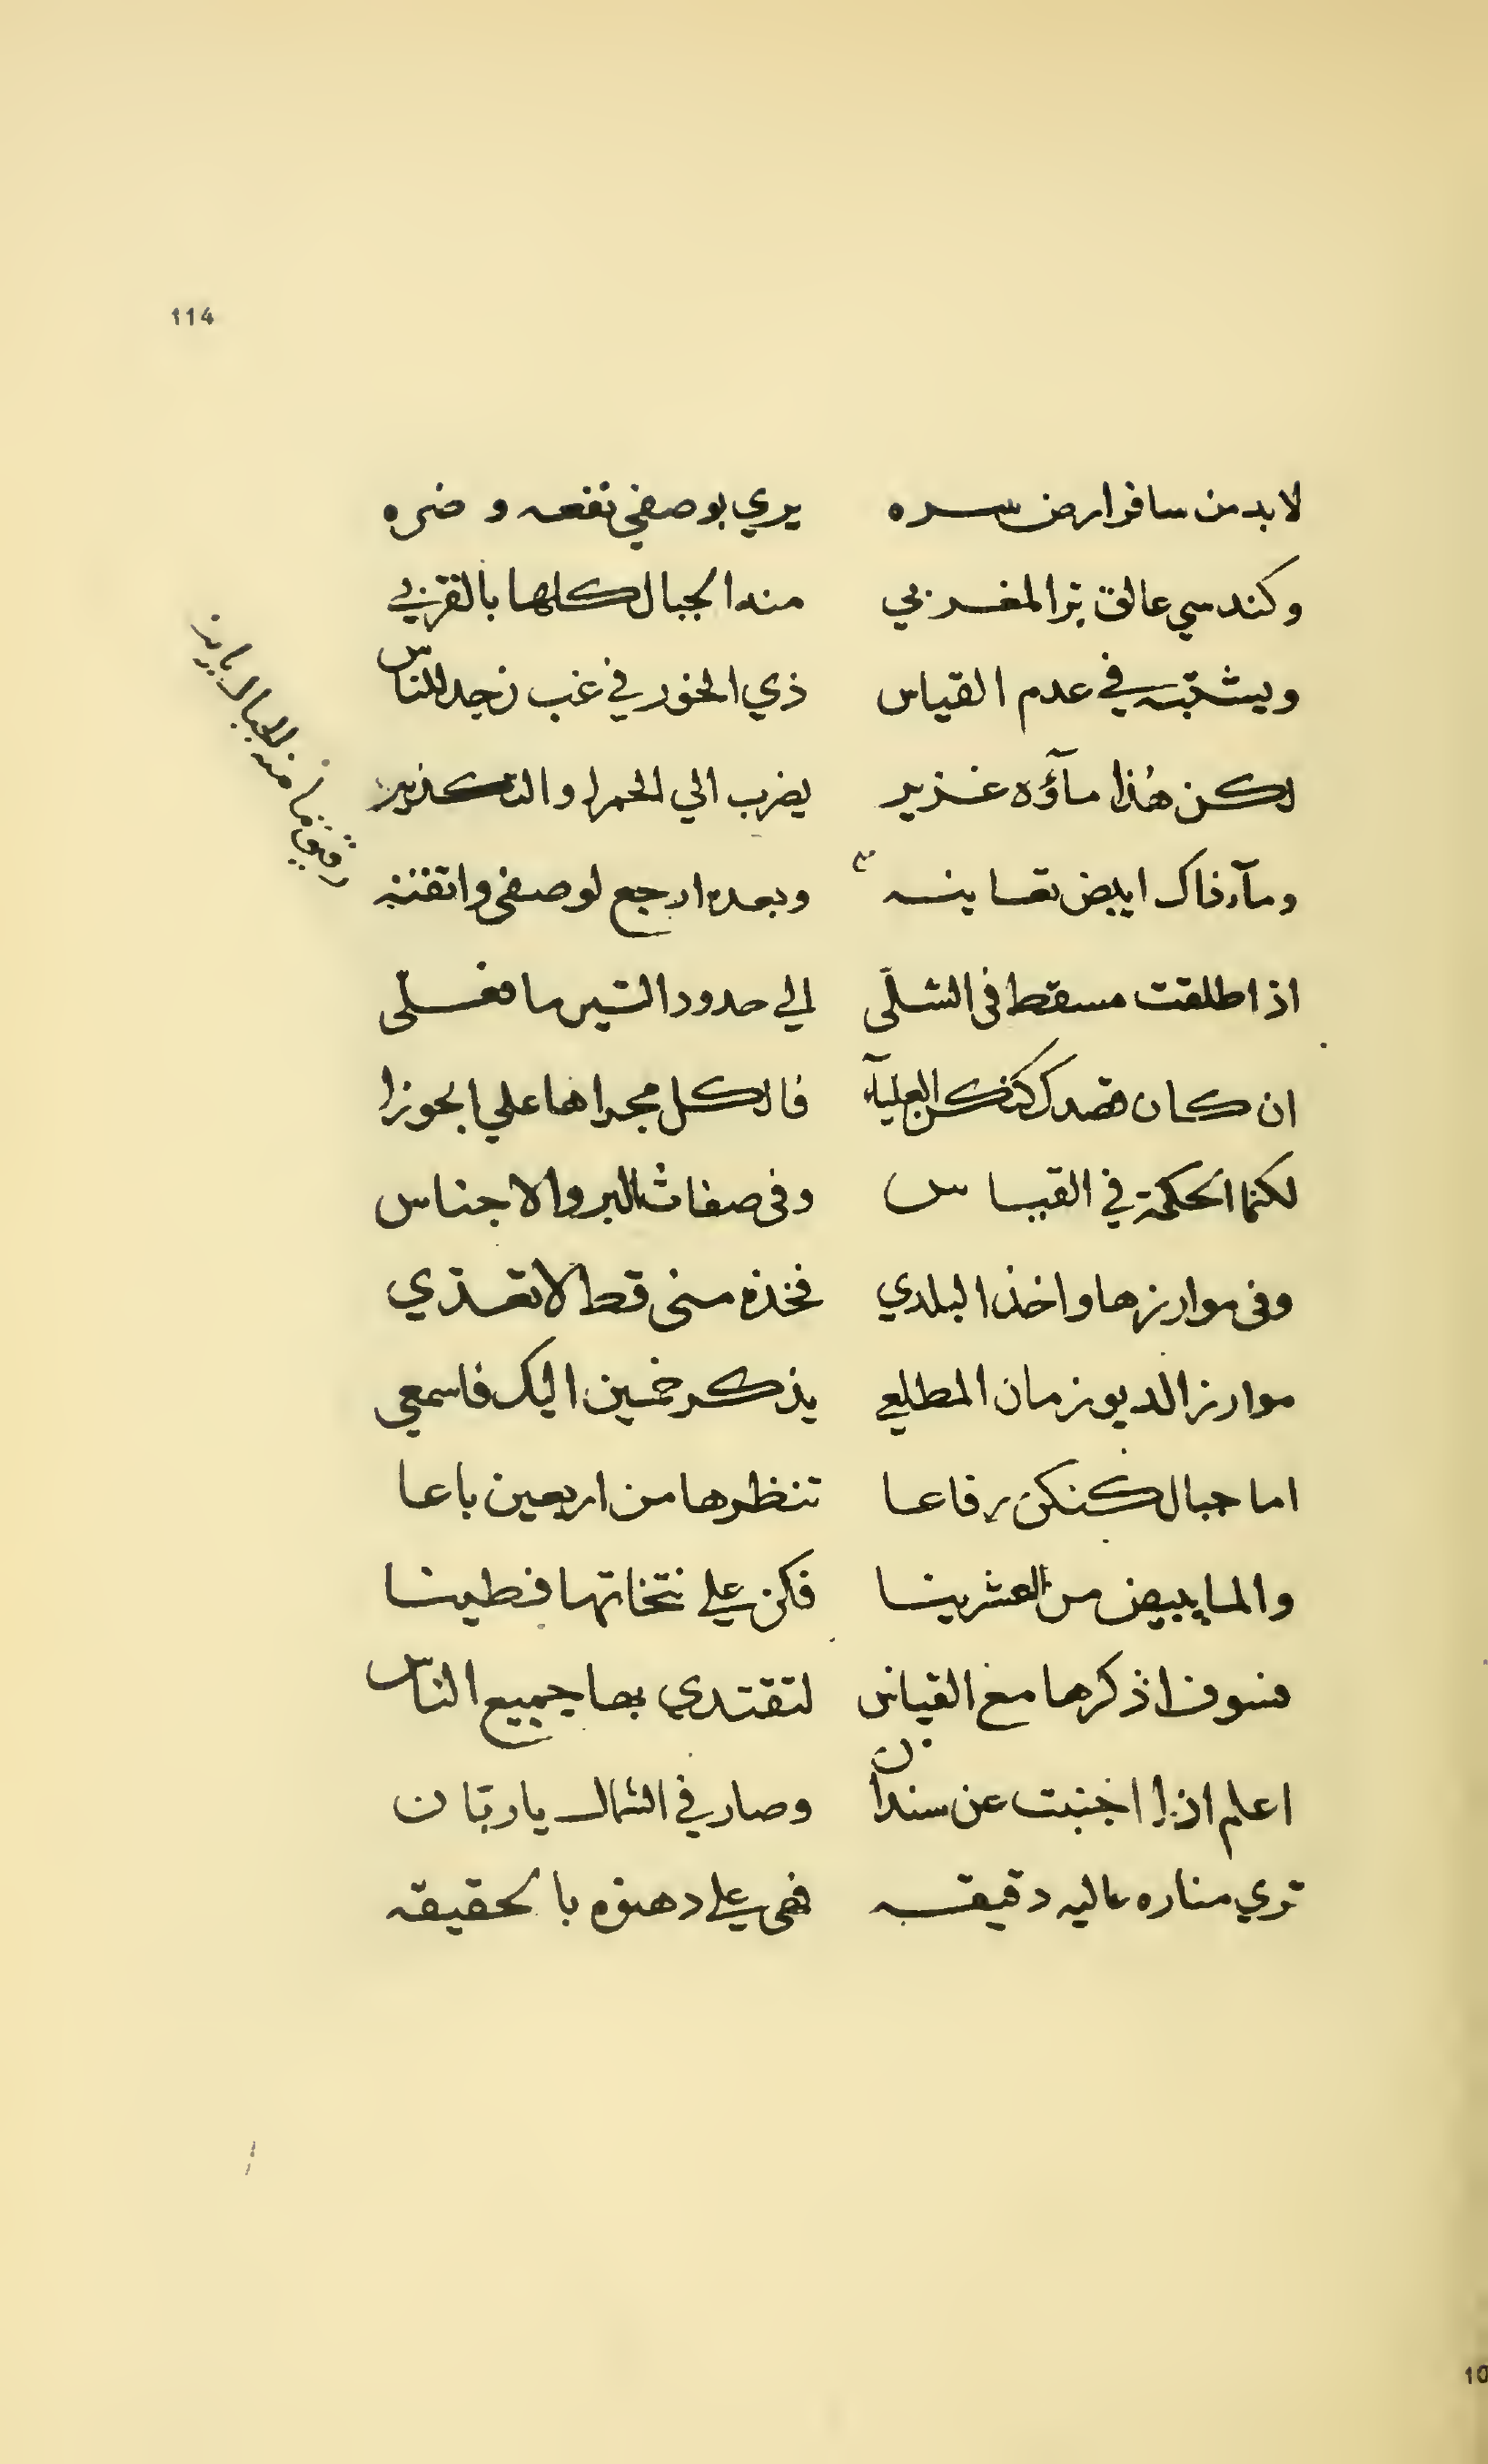 114
لابد من سافر ارض سره يري بوصفي نفعه و ضره
وكندسي عالق بتر المغربي منه الجبال كلها بالقرب
ويشتبه في عدم القياس ذي الخور في غب نجد للناس
لكن هذا مآؤه غزير يضرب الي الحمرا والتكدير
ومآء ذاك ابيض تعاينه وبعده ارجع لوصفي واتقنه
اذا طلقت مسقط في الشلّي الي حدود السير ما مغلّي
ان كان قصدك كنكن العليآء فالكل مجراها علي الجوزا
لكنما الحكمة في القياس وفي صفات البر والاجناس
وفي موارزها واخذ البلدي فخذه مني قط لا تعدّي
موارز الديو زمان المطلعي يذكر خمسين اليك فاسمعي
اما جبال كنكن رفاعا تنظرها من اربعين باعا
والما يبيض من العشرينا فكن علي نتخاتها فطينا
فسوف اذكرها مع القياس لتقتدي بها جميع الناس
اعلم اذا اجنبت عن سندان وصار في الشمال يا ربّان
تري مناره عاليه دقيقه فهي علي دهنوه بالحقيقه
منه الجبال
10